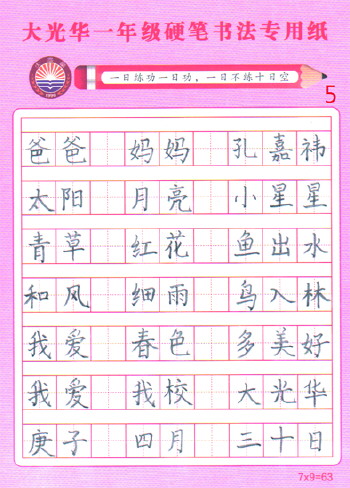 大光华一年级硬笔书法专用纸
一日练功一日功，一日不练十日空
5
爸爸 妈妈 孔嘉祎
太阳 月亮 小星星
青草 红花 鱼出水
和风 细雨 鸟入林
我爱 春色 多美好
我爱 我校 大光华
庚子 四月 三十日
7x9=63